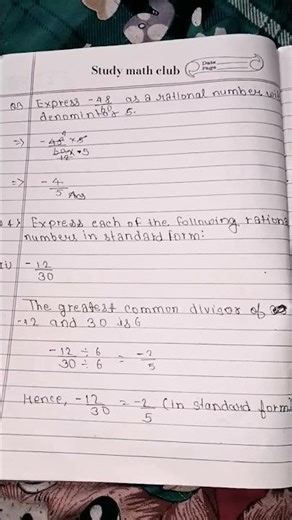 Study math club
Date
Page
Q3 Express -48/60 as a rational number with
denominator 5.
=>
=> -4/5 Ans
Express each of the following rationa
numbers in standard form:
-12/30
The greatest common divisor of
-12 and 30 is 6
-12 ÷ 6 / 30 ÷ 6 = -2/5
Hence, -12/30 = -2/5 (in standard form